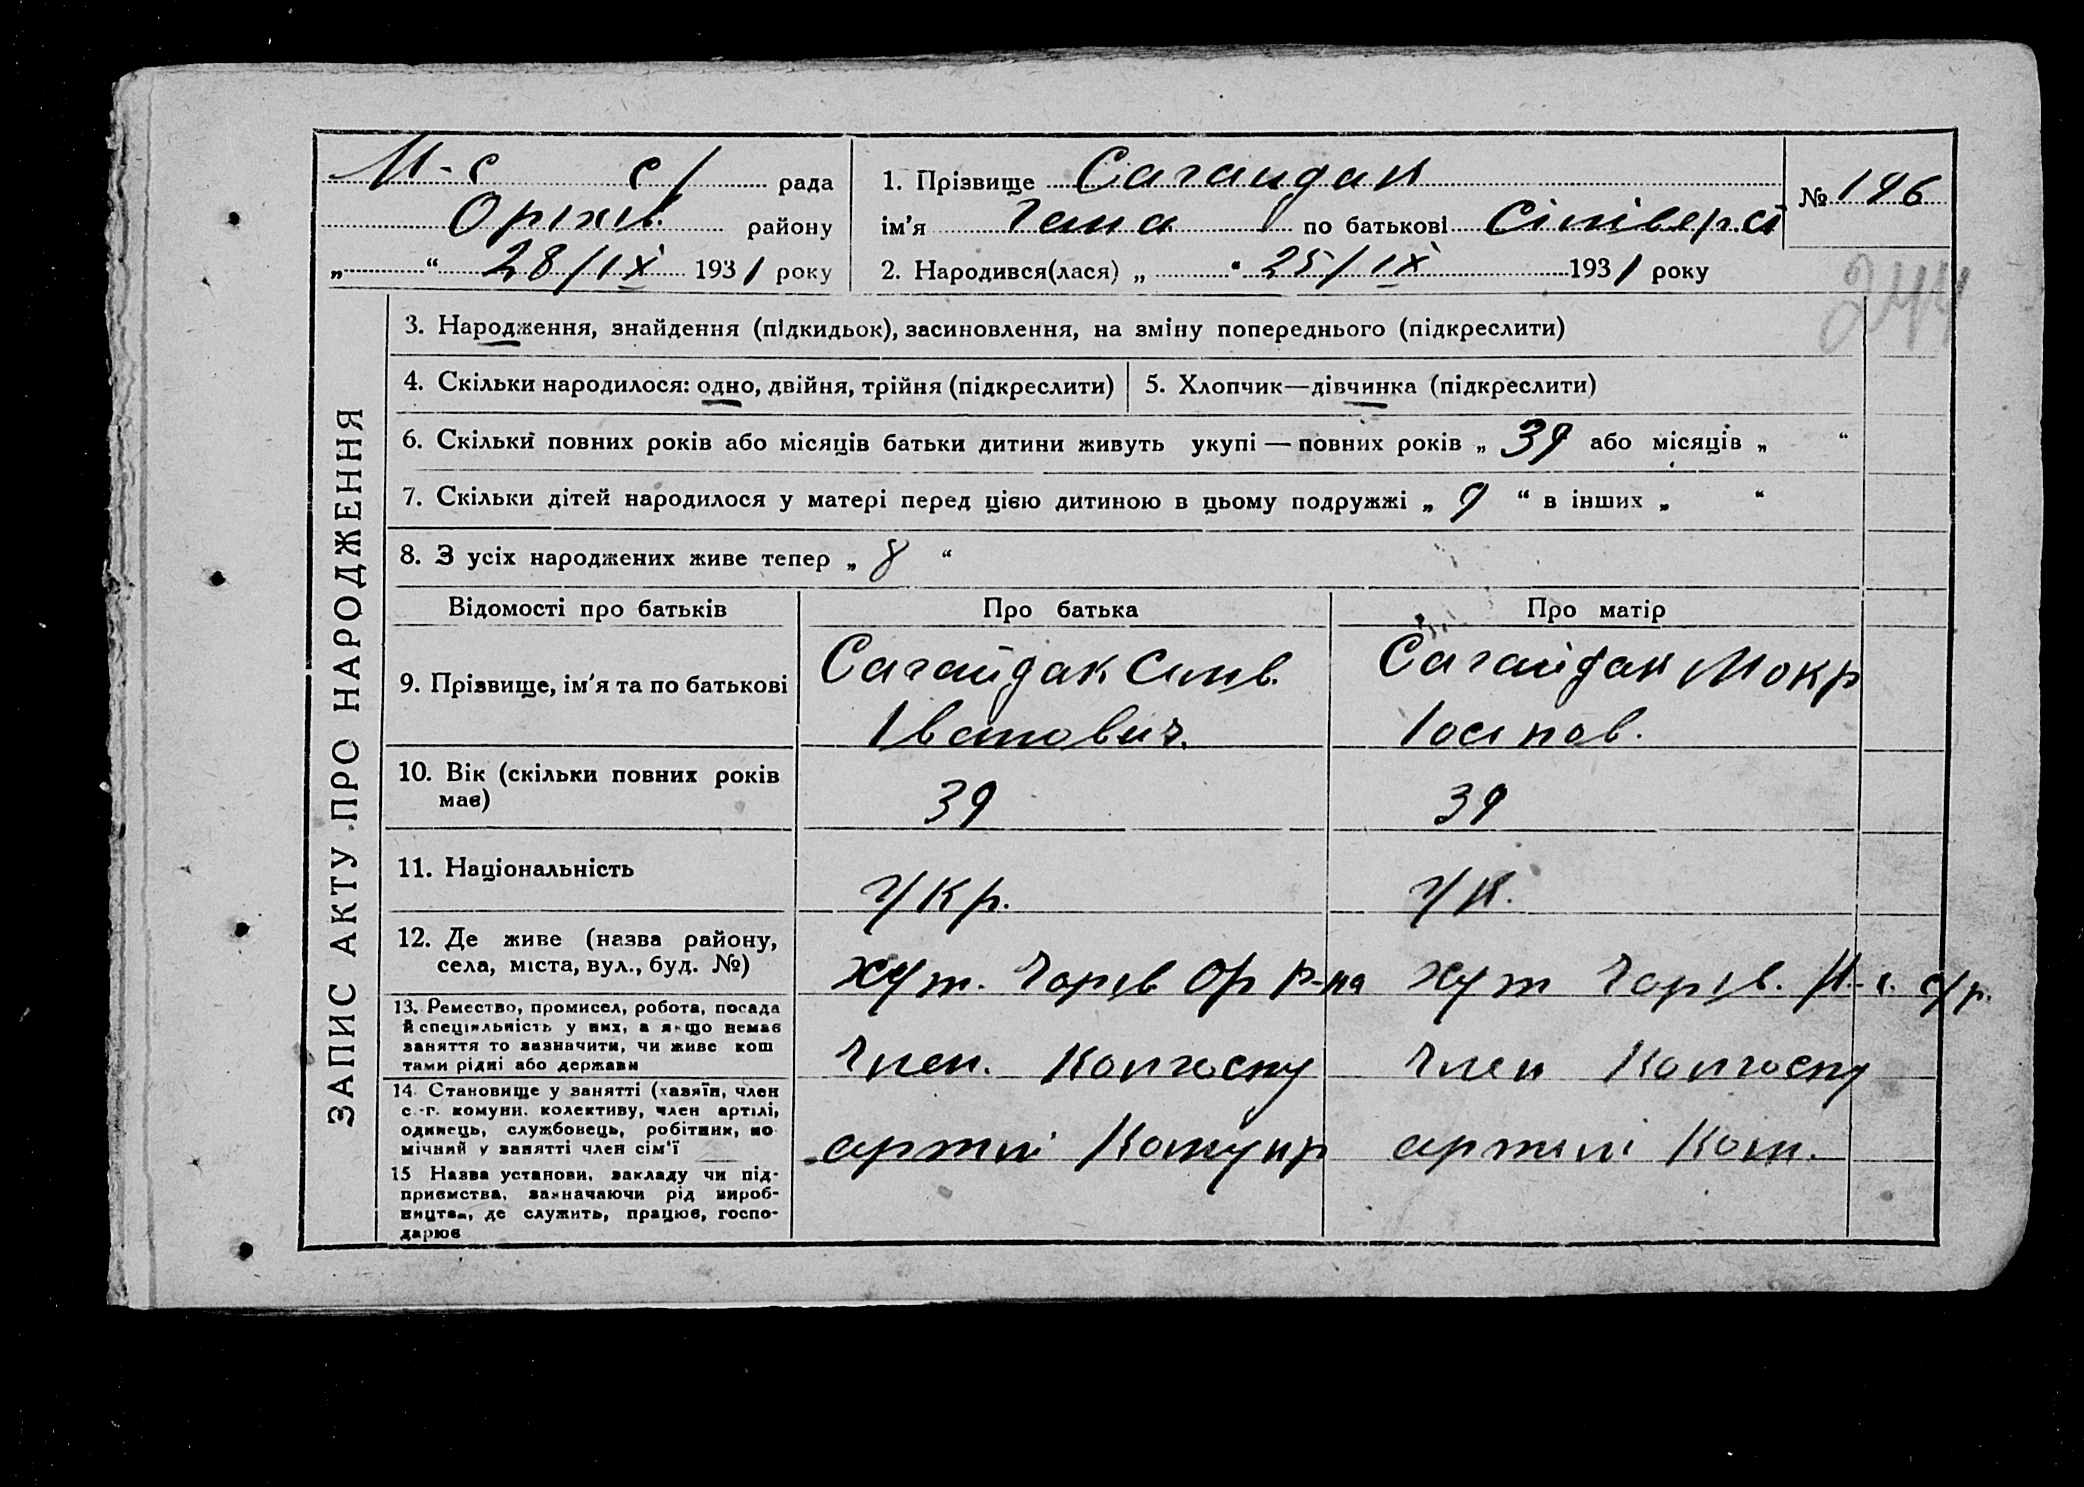 М-с с/ рада
Оріхів. району
„ “ 28/IX 1931 року
1. Прізвище Сагайдак
ім'я Гана по батькові
2. Народився(лася) „ “ 25/IX 1931 року
№ 196
244
ЗАПИС АКТУ ПРО НАРОДЖЕННЯ
3. Народження, знайдення (підкидьок), засиновлення, на зміну попереднього (підкреслити)
4. Скільки народилося: одно, двійня, трійня (підкреслити)
5. Хлопчик—дівчинка (підкреслити)
6. Скільки повних років або місяців батьки дитини живуть укупі — повних років „ 39 або місяців „ “
7. Скільки дітей народилося у матері перед цією дитиною в цьому подружжі „ 9 “ в інших „ “
8. З усіх народжених живе тепер „ 8 “
Відомості про батьків
Про батька
Про матір
9. Прізвище, ім'я та по батькові
Сагайдак Сілів.
Іванович.
Сагайдак Мокр
Іосипов.
10. Вік (скільки повних років
має)
39
39
11. Національність
Укр.
Ук.
12. Де живе (назва району,
села, міста, вул., буд. №)
хут. Ор р-на
хут с/р.
13. Ремество, промисел, робота, посада
й спеціяльність у них, а якщо немає
заняття то зазначити, чи живе кош
тами рідні або держави
Член. Колгоспу
Член Колгоспу
14. Становище у занятті (хазяїн, член
с.-г. комуни. колективу, член артілі,
одинець, службовець, робітник, по
мічний у занятті член сім'ї
артілі Комунр
артілі Ком.
15 Назва установи, закладу чи під-
приємства, зазначаючи рід вироб-
ництва, де служить, працює, госпо-
дарює